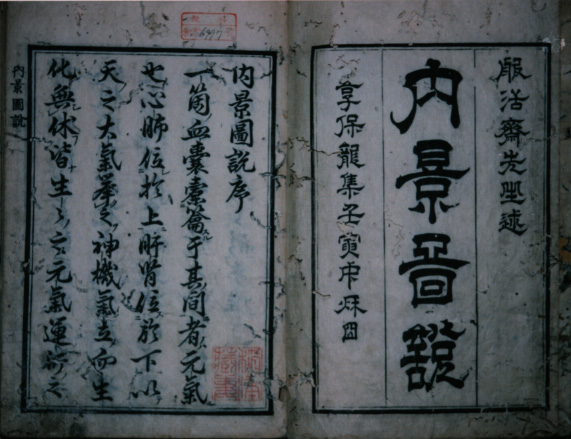 服活齋先生述
内景啚說
享保龍集壬寅中秌
内景圖說序
一箇血囊橐籥于其間者元氣
也心肺位於上肝腎位於下以
天之大氣之神機氣立而生
化無休皆生々元氣運行之
内景圖說